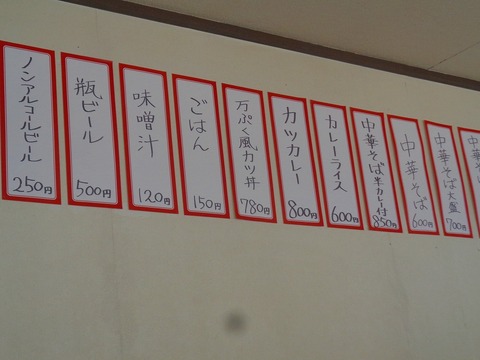 中華そば大盛
700円
中華そば
600円
中華そば半カレー付
850円
カレーライス
600円
カツカレー
800円
万ぷく風カツ丼
780円
ごはん
150円
味噌汁
120円
瓶ビール
500円
ノンアルコールビール
250円